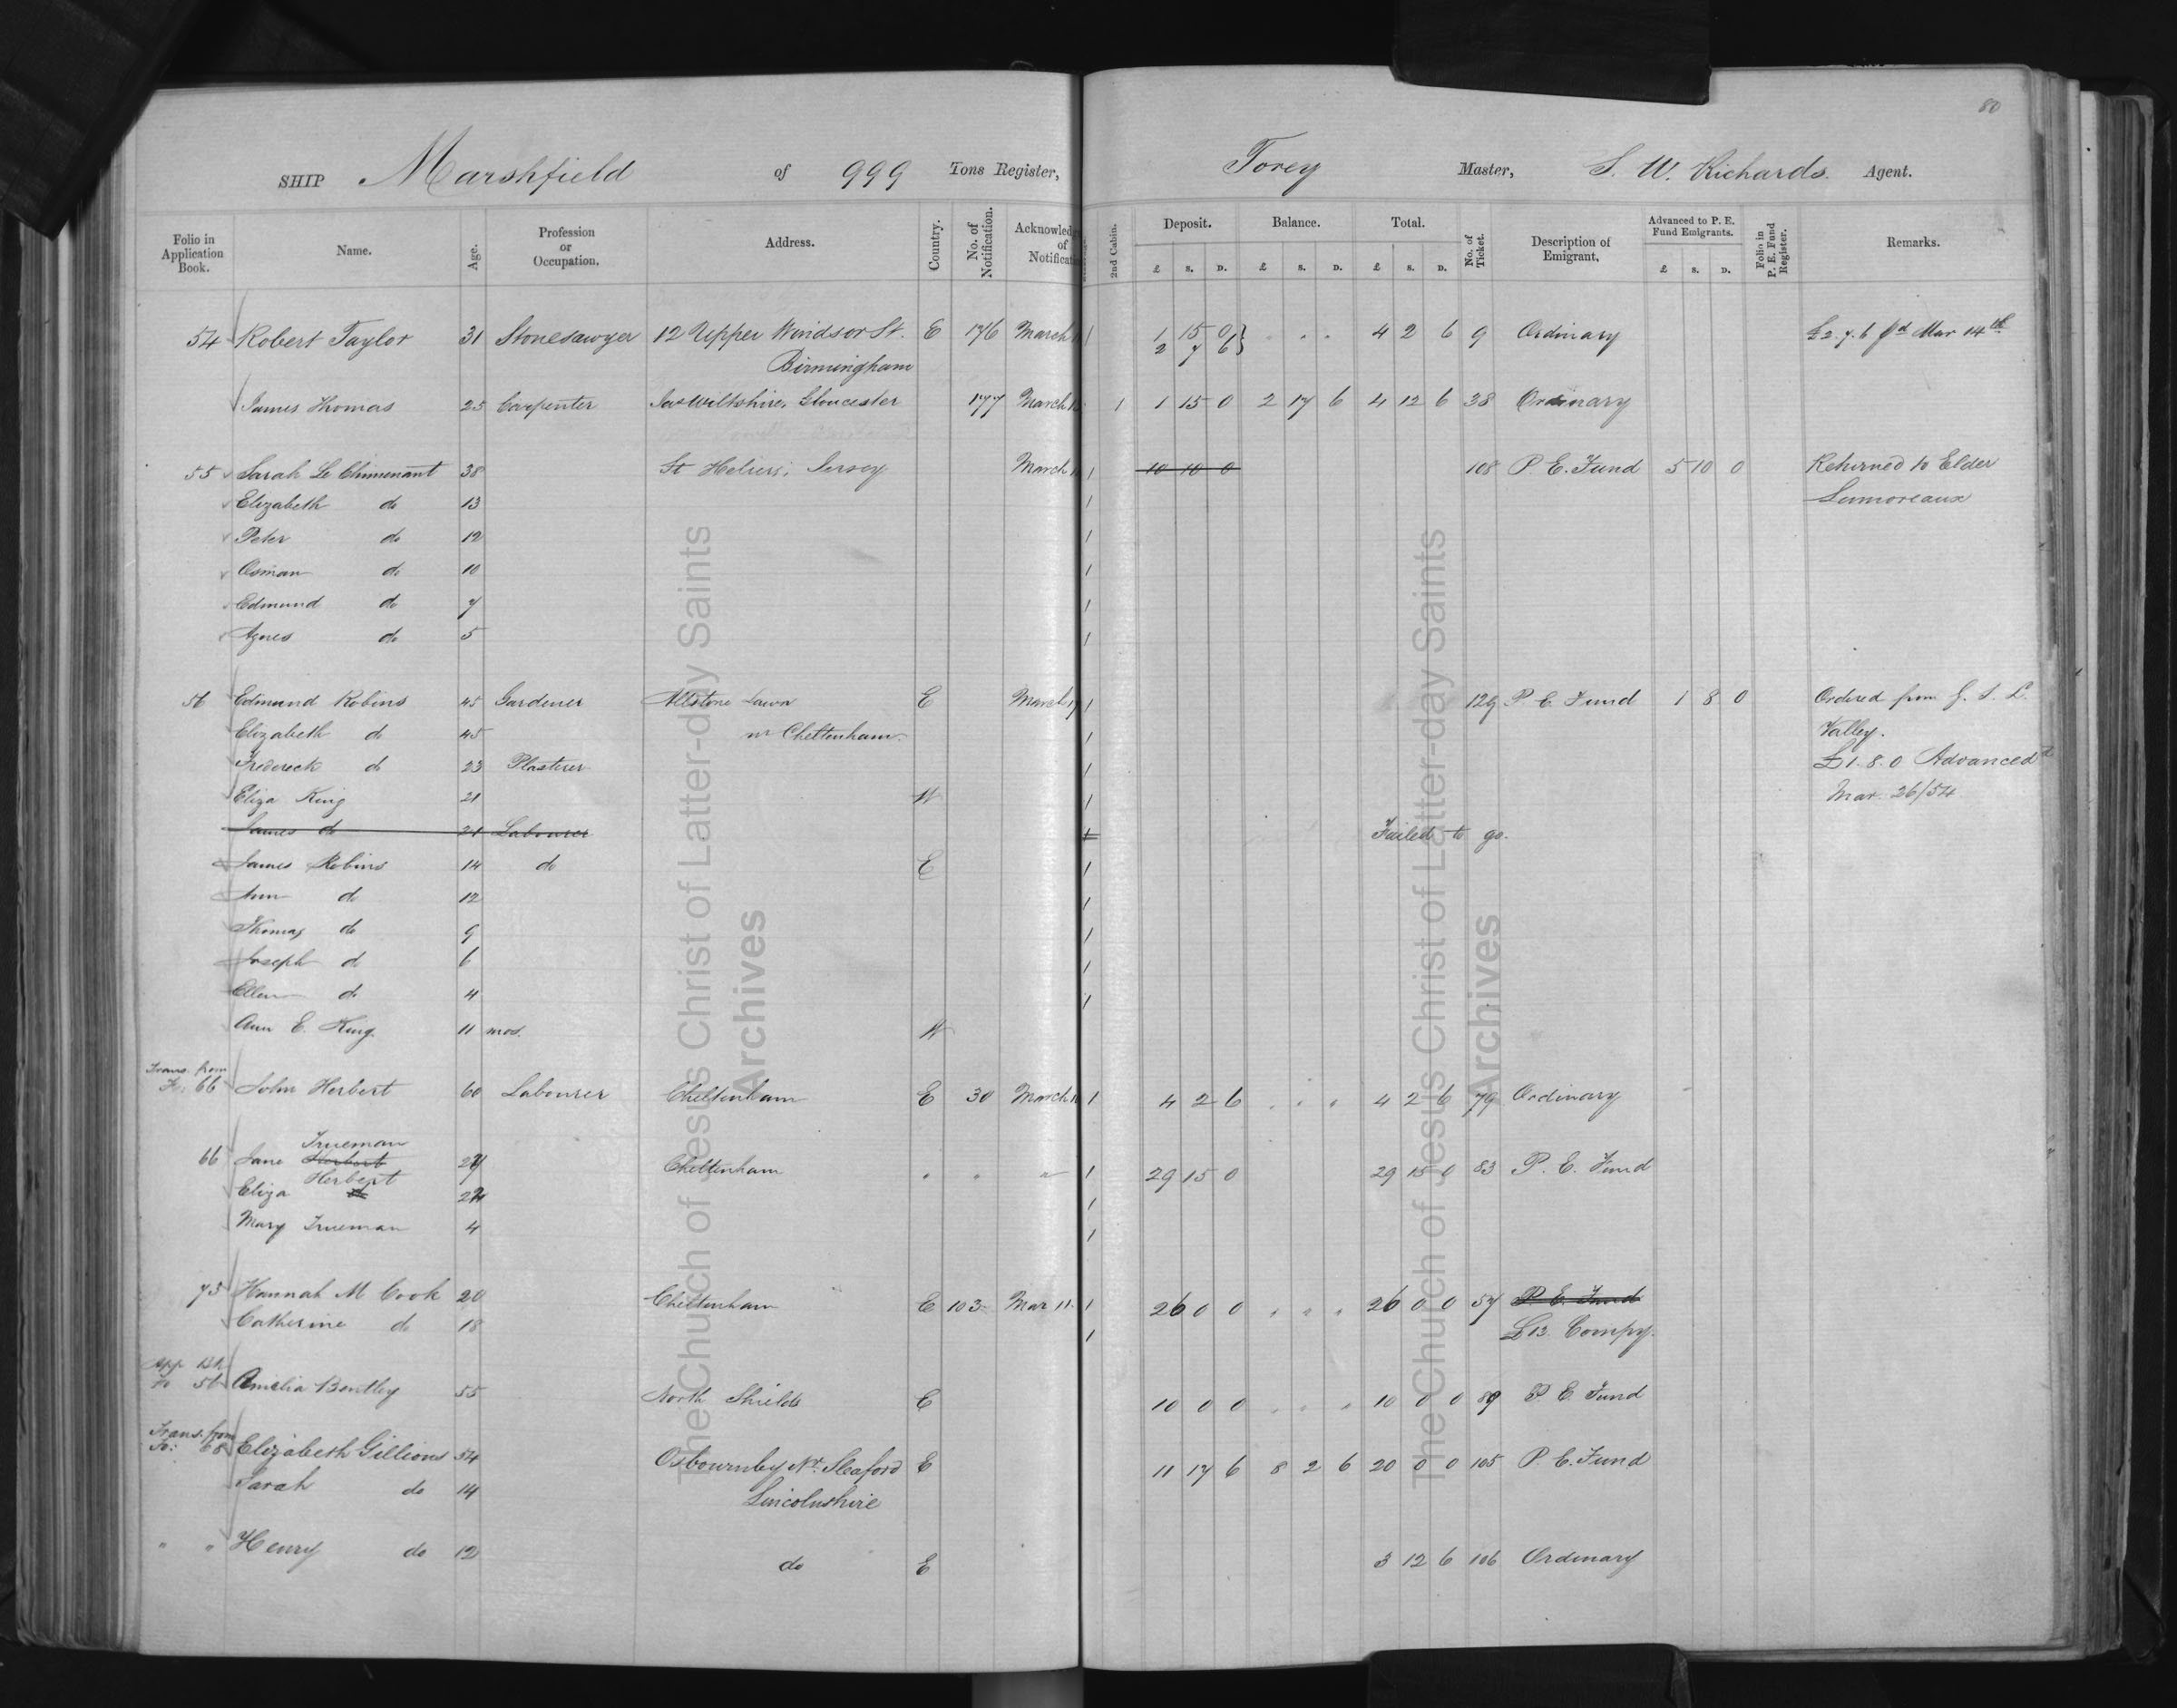 80
SHIP Marshfield of 999 Tons Register, Torey Master, S. W. Richards. Agent.
Folio in Application Book. Name. Age. Profession or Occupation. Address. Country. No. of Notification. Acknowled of Notificat 2nd Cabin. Deposit. Balance. Total. No. of Ticket. Description of Emigrant. Advanced to P. E. Fund Emigrants. Folio in P. E. Fund Register. Remarks.
£ S. D. £ S. D. £ S. D. £ S. D.
54 Robert Taylor 31 Stonesawyer 12 Upper Windsor St. E 176 March 1 1 15 0 } . . . 4 2 6 9 Ordinary £2.7.6 pd Mar 14th
Birmingham 2 7 6 }
James Thomas 25 Carpenter Wiltshire, Gloucester 177 March 1 1 15 0 2 17 6 4 12 6 38 Ordinary
55 Sarah Le Chimenant 38 St Heliers, Jersey March 1 10 10 0 108 P E. Fund 5 10 0 Returned to Elder
Elizabeth do 13 1 Lamoreaux
Peter do 12 1
Osman do 10 1
Edmund do 7 1
Agnes do 5 1
56 Edmund Robins 45 Gardener Allstone Lawn E March 1 129 P. E. Fund 1 8 0 Ordered from G. S. L.
Elizabeth do 45 nr Cheltenham. 1 Valley.
Frederick do 23 Plasterer 1 £1.8.0 Advanced
Eliza King 21 W 1 Mar. 26/54
James do 21 Labourer 1 Failed to go.
James Robins 14 do E 1
Ann do 12 1
Thomas do 9 1
Joseph d 6 1
Ellen do 4 1
Ann E. King. 11 mos. W
Trans. from
Fo: 66 John Herbert 60 Labourer Cheltenham E 30 March 1 4 2 6 . . . 4 2 6 79 Ordinary
Trueman
66 Jane Herbert 27 Cheltenham " " " 1 29 15 0 29 15 0 83 P. E. Fund
Herbert
Eliza do 24 1
Mary Trueman 4 1
75 Hannah M Cook 20 Cheltenham E 103 Mar 11. 1 26 0 0 " " " 26 0 0 57 P. E. Fund
Catherine do 18 1 £13. Compy.
App Bk
Fo 56 Amelia Bentley 55 North Shields E 10 0 0 . . . 10 0 0 89 P. E. Fund
Trans. from
Fo: 68 Elizabeth Gillions 54 Osbournby Nr. Sleaford E 11 17 6 8 2 6 20 0 0 105 P. E. Fund
Sarah do 14 Lincolnshire
" " Henry do 12 do E 3 12 6 106 Ordinary
The Church of Jesus Christ of Latter-day Saints
Archives
The Church of Jesus Christ of Latter-day Saints
Archives